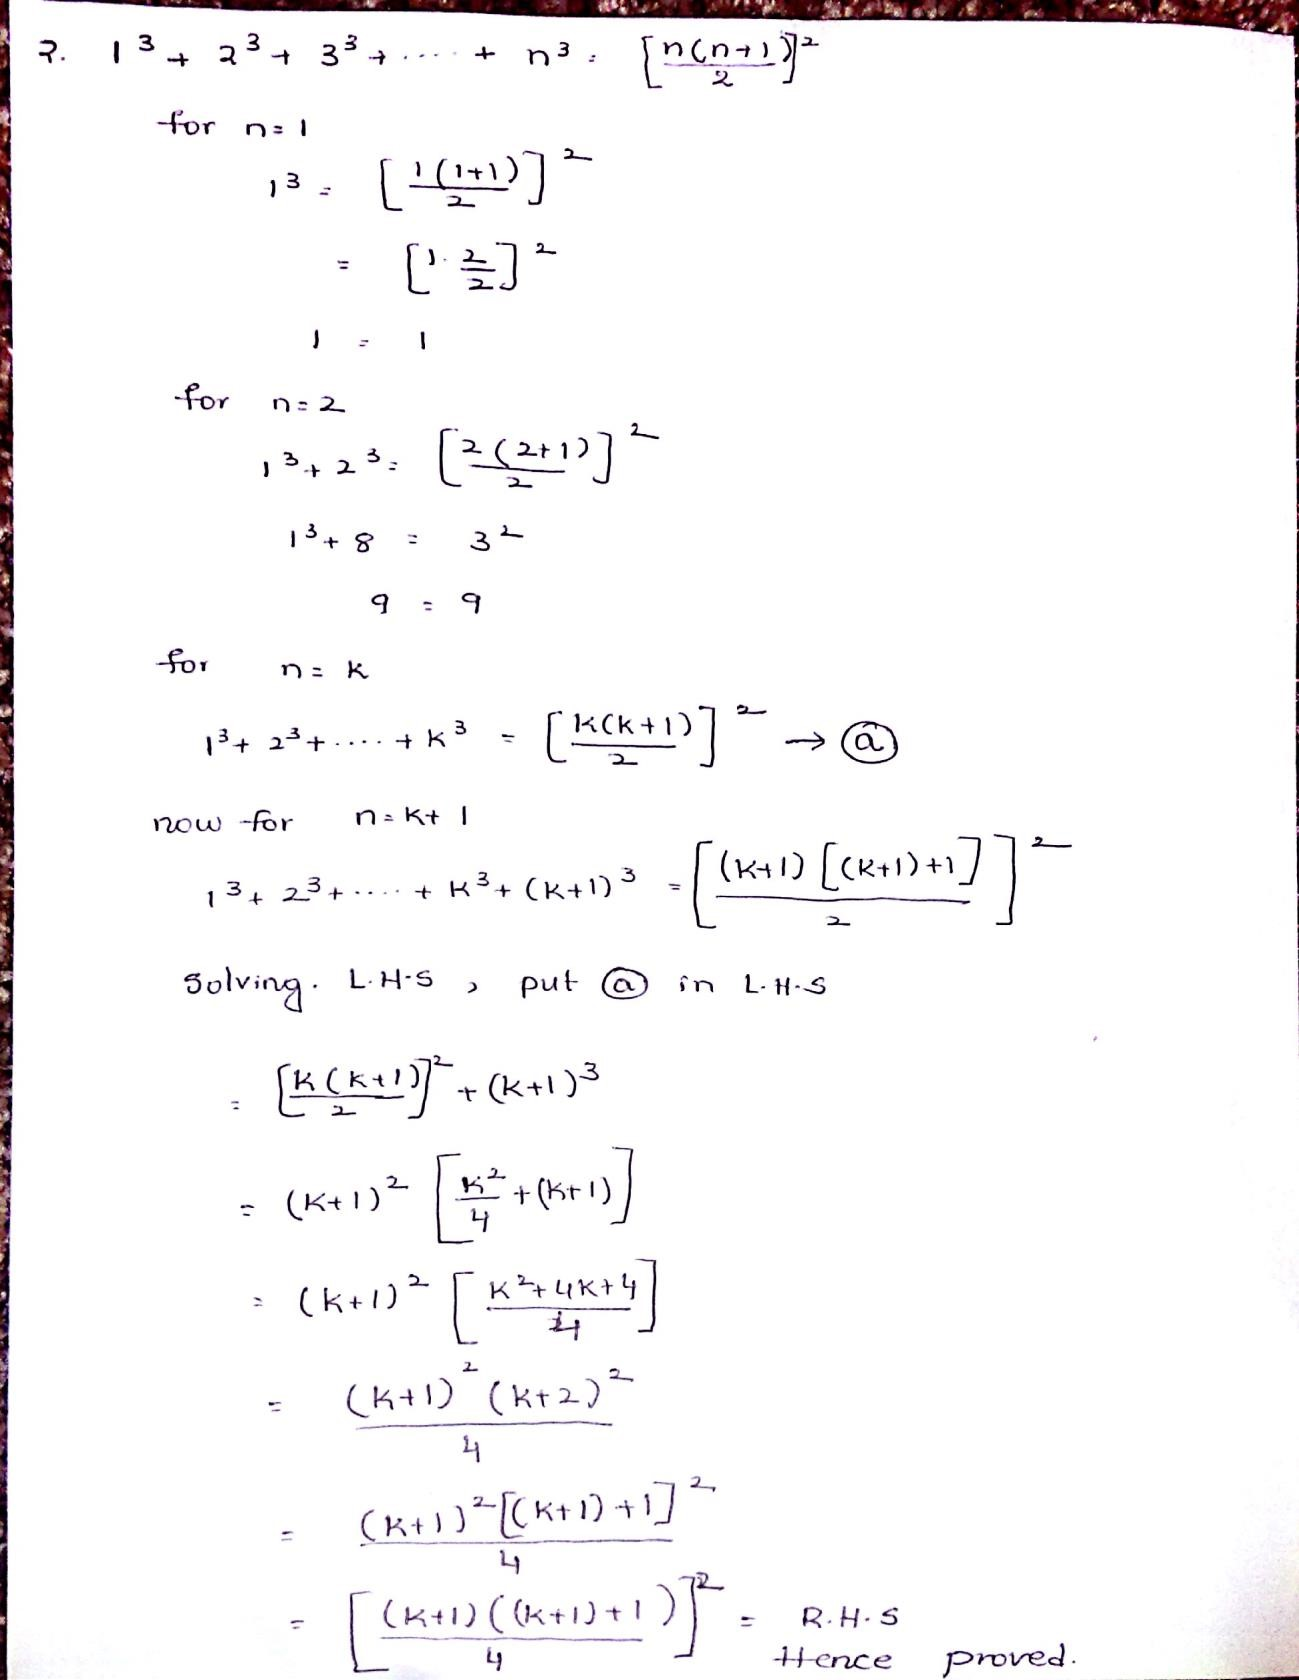 2. 1³ + 2³ + 3³ + .... + n³ = [n(n+1)/2]²
for n=1
1³ = [1(1+1)/2]²
= [1·2/2]²
1 = 1
for n=2
1³+2³ = [2(2+1)/2]²
1³+8 = 3²
9 = 9
for n=k
1³+2³+....+k³ = [k(k+1)/2]² → ⓐ
now for n=k+1
1³+2³+....+k³+(k+1)³ = [(k+1)[(k+1)+1]/2]²
Solving. L.H.S , put ⓐ in L.H.S
= [k(k+1)/2]² + (k+1)³
= (k+1)² [k²/4 + (k+1)]
= (k+1)² [k²+4k+4/4]
= (k+1)² (k+2)²/4
= (k+1)² [(k+1)+1]²/4
= [(k+1)((k+1)+1)/4]² = R.H.S
Hence proved.